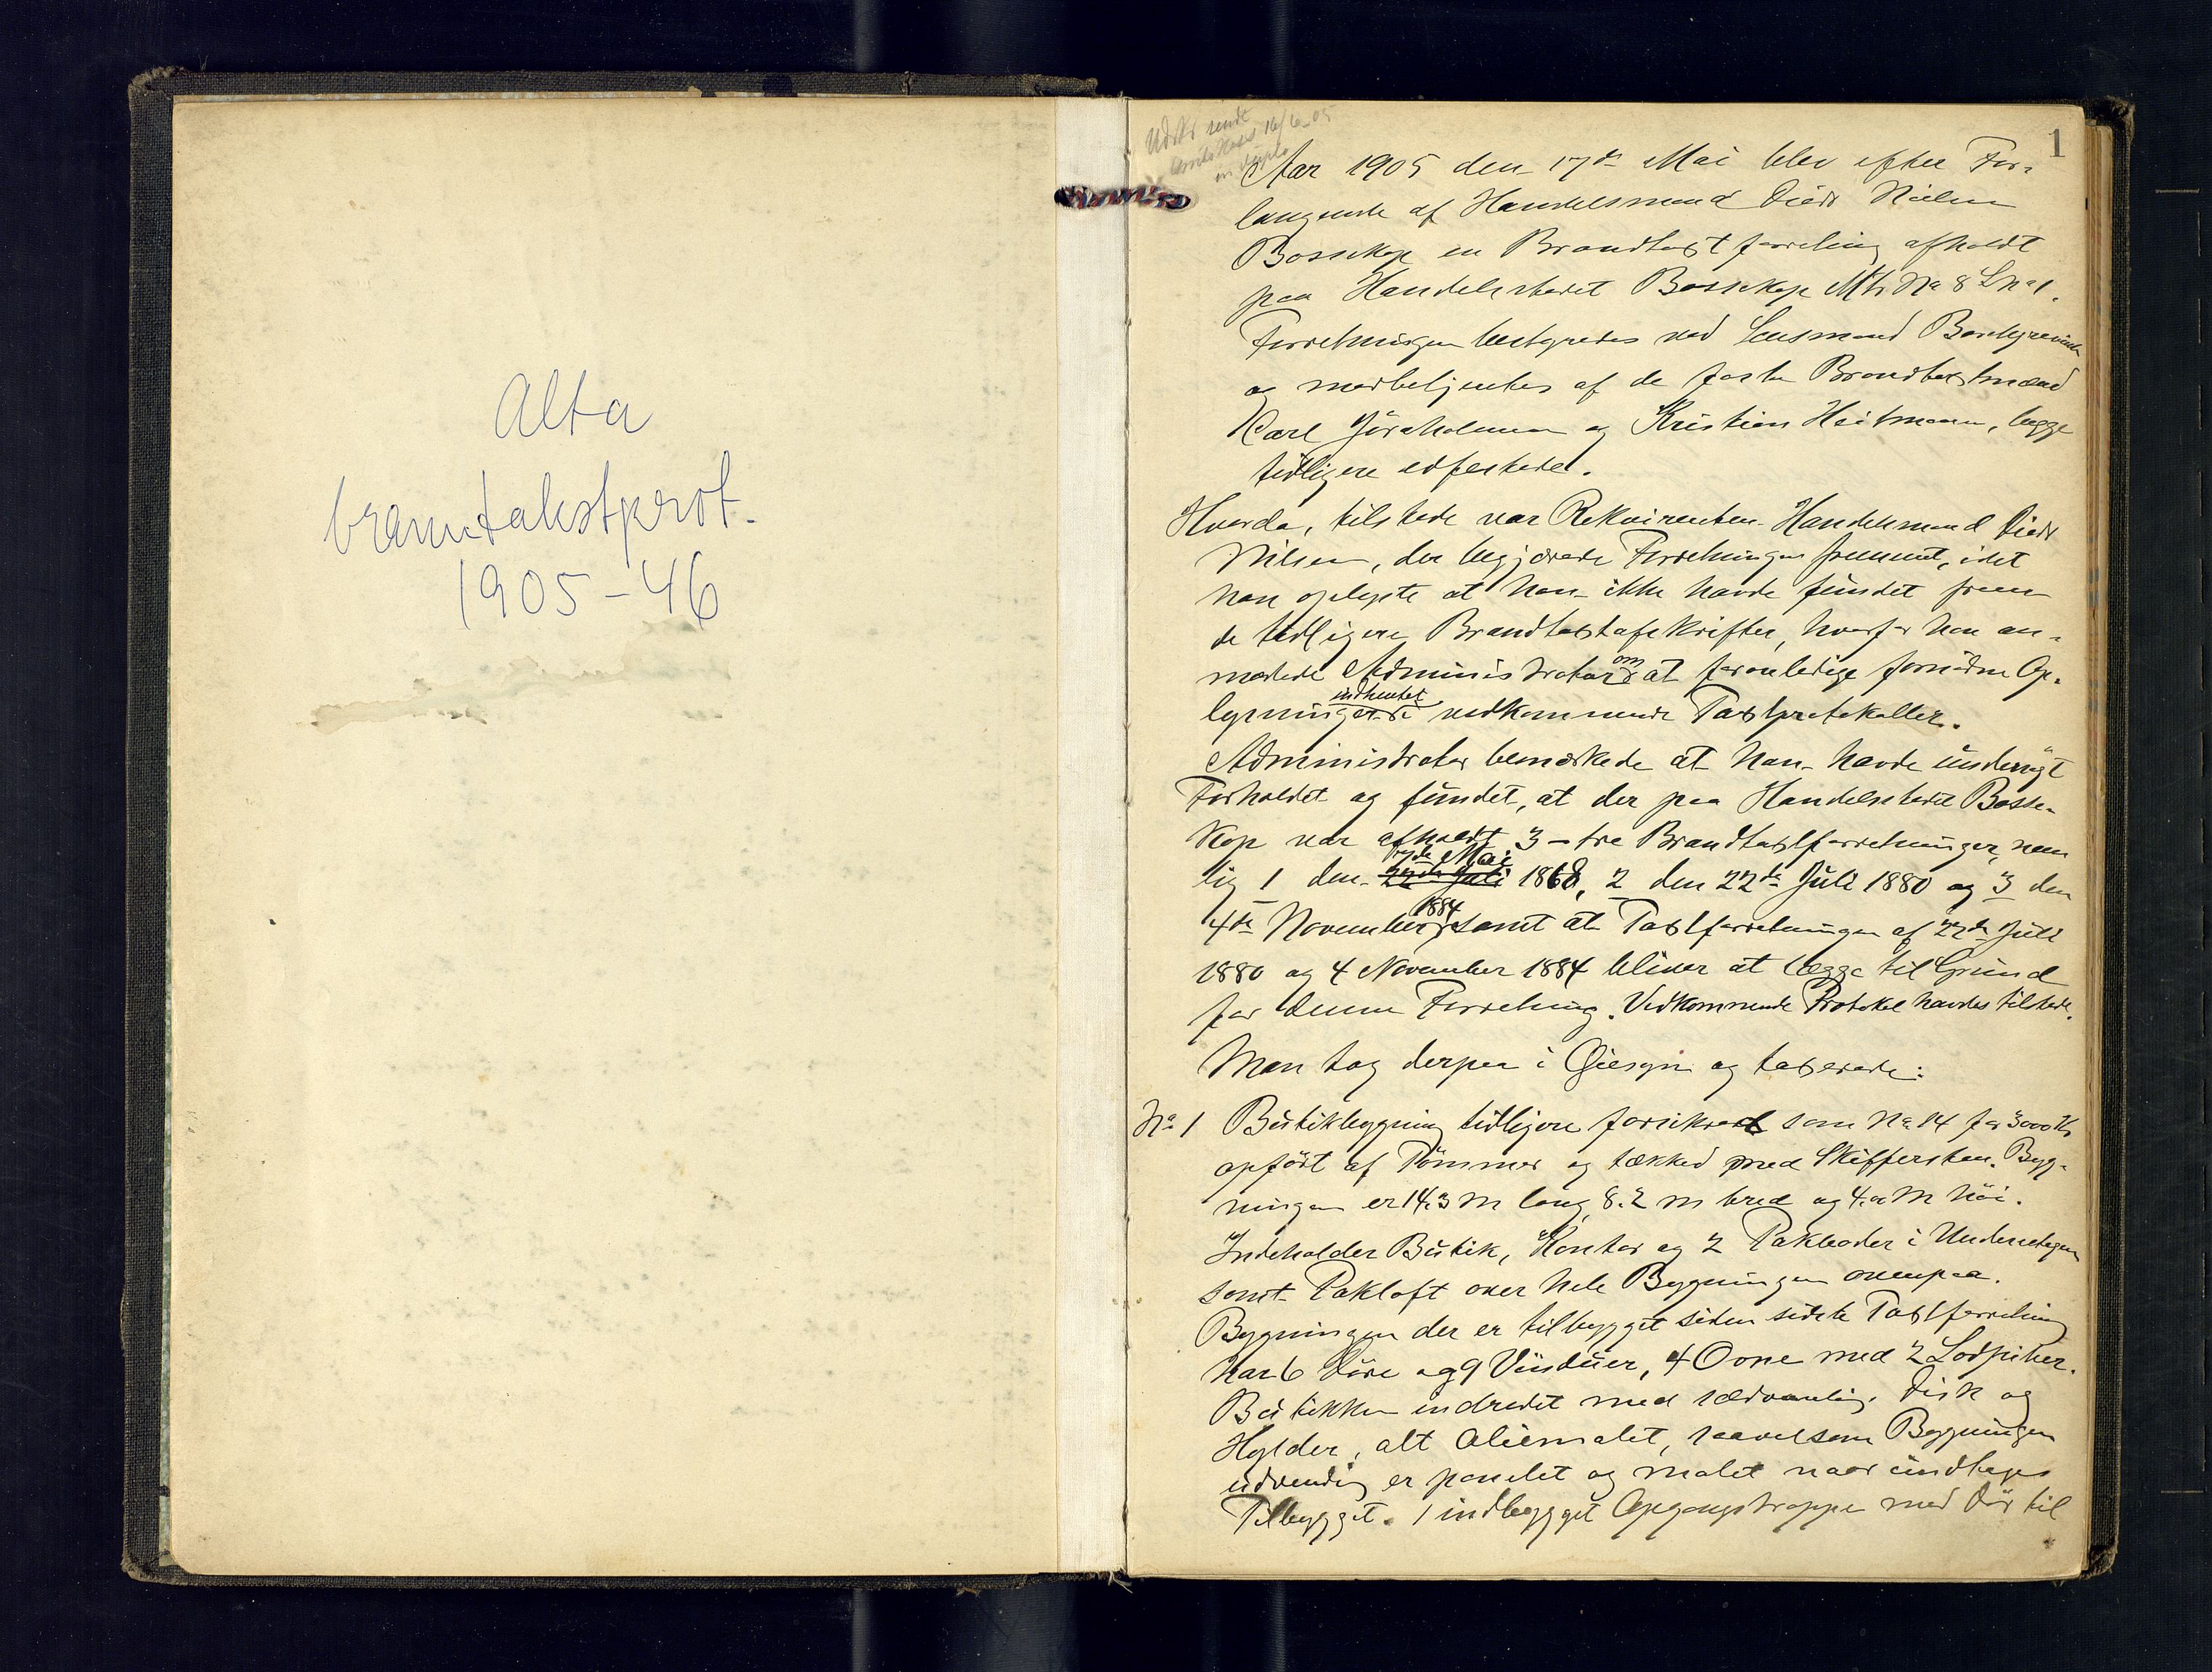 Alta
branntakstprot.
1905-46
1
Aar 1905 den 17de Mai blev efter For-
langende af Handelsmand Diedr Nielsen
Bossekop en Brandtaxtforretning afholdt
paa Handelsstedet Bossekop Mtr No 8 Lno 1.
Forretningen bestyredes ved Lensmand Borchgrevink
og medbetjentes af de faste Brandtaxtmænd
Karl Jøraholmen og Kristian Heitmann, begge
tidligere edfæstede.
Hvorda, tilstede var Rekvirenten Handelsmand Diedr
Nilsen, der begjærede Forretningen fremmet, idet
han oplyste at han ikke havde fundet frem
de tidligere Brandtaxtafskrifter, hvorfor han an-
modede Administrator om at foranledige fornødne Op-
lysninger indhentet i vedkommende Taxtprotokoller.
Administrator bemærkede at han havde undersøgt
Forholdet og fundet, at der paa Handelsstedet Bosse-
kop var afholdt 3 – tre Brandtaxtforretninger, nem
lig 1 den Mai 1868, 2 den 22de Juli 1880 og 3 den
4de November 1884 samt at Taxtforretningen af 22de Juli
1880 og 4 November 1884 bliver at lægge til Grund
for denne Forretning. Vedkommende Protokol havdes tilstede.
Man tog derpaa i Øiesyn og taxerede:
No 1 Butikbygning tidligere forsikret som No 14 for 3000 Kr
opført af Tømmer og tækked med Skiffersten. Byg-
ningen er 14.3 m lang, 8.2 m bred og 4.0 m høi.
Indeholder Butik, Kontor og 2 Pakboder i Underetagen
samt Pakloft over hele Bygningen ovenpaa.
Bygningen der er tilbygget siden sidste Taxtforretning
har 6 Døre og 9 Vinduer, 4 Ovne med 2 Lodpiber.
Butikken indredet med sædvanlig Disk og
Hylder, alt oliemalet, saavelsom Bygningen
udvendig er panelet og malet naar undtages
Tilbygget. 1 indbygget Opgangstrappe med Dør til